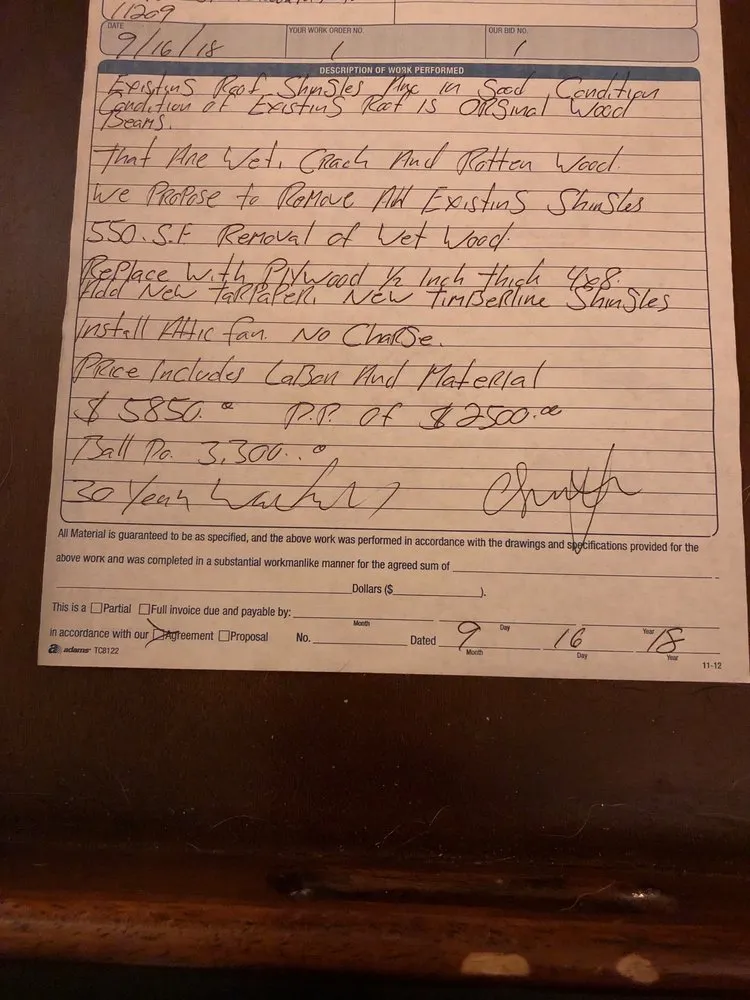 11209
DATE
YOUR WORK ORDER NO.
OUR BID NO.
9/16/18
1
1
DESCRIPTION OF WORK PERFORMED
Existing Roof Shingles Are in Good Condition
Condition of Existing Roof is Original Wood
Beams.
That Are Wet, Crack And Rotten Wood.
We Propose to Remove All Existing Shingles
550.S.F Removal of Wet Wood.
Replace With Plywood 1/2 Inch thick 4x8.
Add New TarPaper, New Timberline Shingles
Install Attic fan. No Charge.
Price Includes Labor And Material
$ 5850.00 D.P. of $ 2500.00
Ball Do. 3,300..0
30 Year Warranty
All Material is guaranteed to be as specified, and the above work was performed in accordance with the drawings and specifications provided for the
above work and was completed in a substantial workmanlike manner for the agreed sum of
Dollars ($ ).
This is a ☐ Partial ☐ Full invoice due and payable by:
Month Day Year
in accordance with our ☒ Agreement ☐ Proposal No. Dated 9 16 18
Month Day Year
adams TC8122
11-12